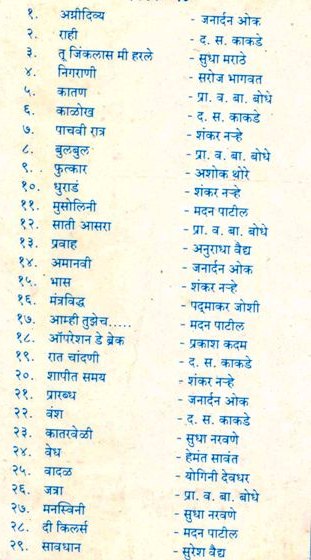 १. अग्नीदिव्य - जनार्दन ओक
२. राही - द. स. काकडे
३. तू जिंकलास मी हरले - सुधा मराठे
४. निगराणी - सरोज भागवत
५. कातण - प्रा. व. बा. बोधे
६. काळोख - द. स. काकडे
७. पाचवी रात्र - शंकर नऱ्हे
८. बुलबुल - प्रा. व. बा. बोधे
९. फुत्कार - अशोक थोरे
१०. धुराडं - शंकर नऱ्हे
११. मुसोलिनी - मदन पाटील
१२. साती आसरा - प्रा. व. बा. बोधे
१३. प्रवाह - अनुराधा वैद्य
१४. अमानवी - जनार्दन ओक
१५. भास - शंकर नऱ्हे
१६. मंत्रविद्ध - पद्माकर जोशी
१७. आम्ही तुझेच..... - मदन पाटील
१८. ऑपरेशन डे ब्रेक - प्रकाश कदम
१९. रात चांदणी - द. स. काकडे
२०. शापीत समय - शंकर नऱ्हे
२१. प्रारब्ध - जनार्दन ओक
२२. वंश - द. स. काकडे
२३. कातरवेळी - सुधा नरवणे
२४. वेध - हेमंत सावंत
२५. वादळ - योगिनी देवधर
२६. जत्रा - प्रा. व. बा. बोधे
२७. मनस्विनी - सुधा नरवणे
२८. दी किलर्स - मदन पाटील
२९. सावधान - सुरेश वैद्य